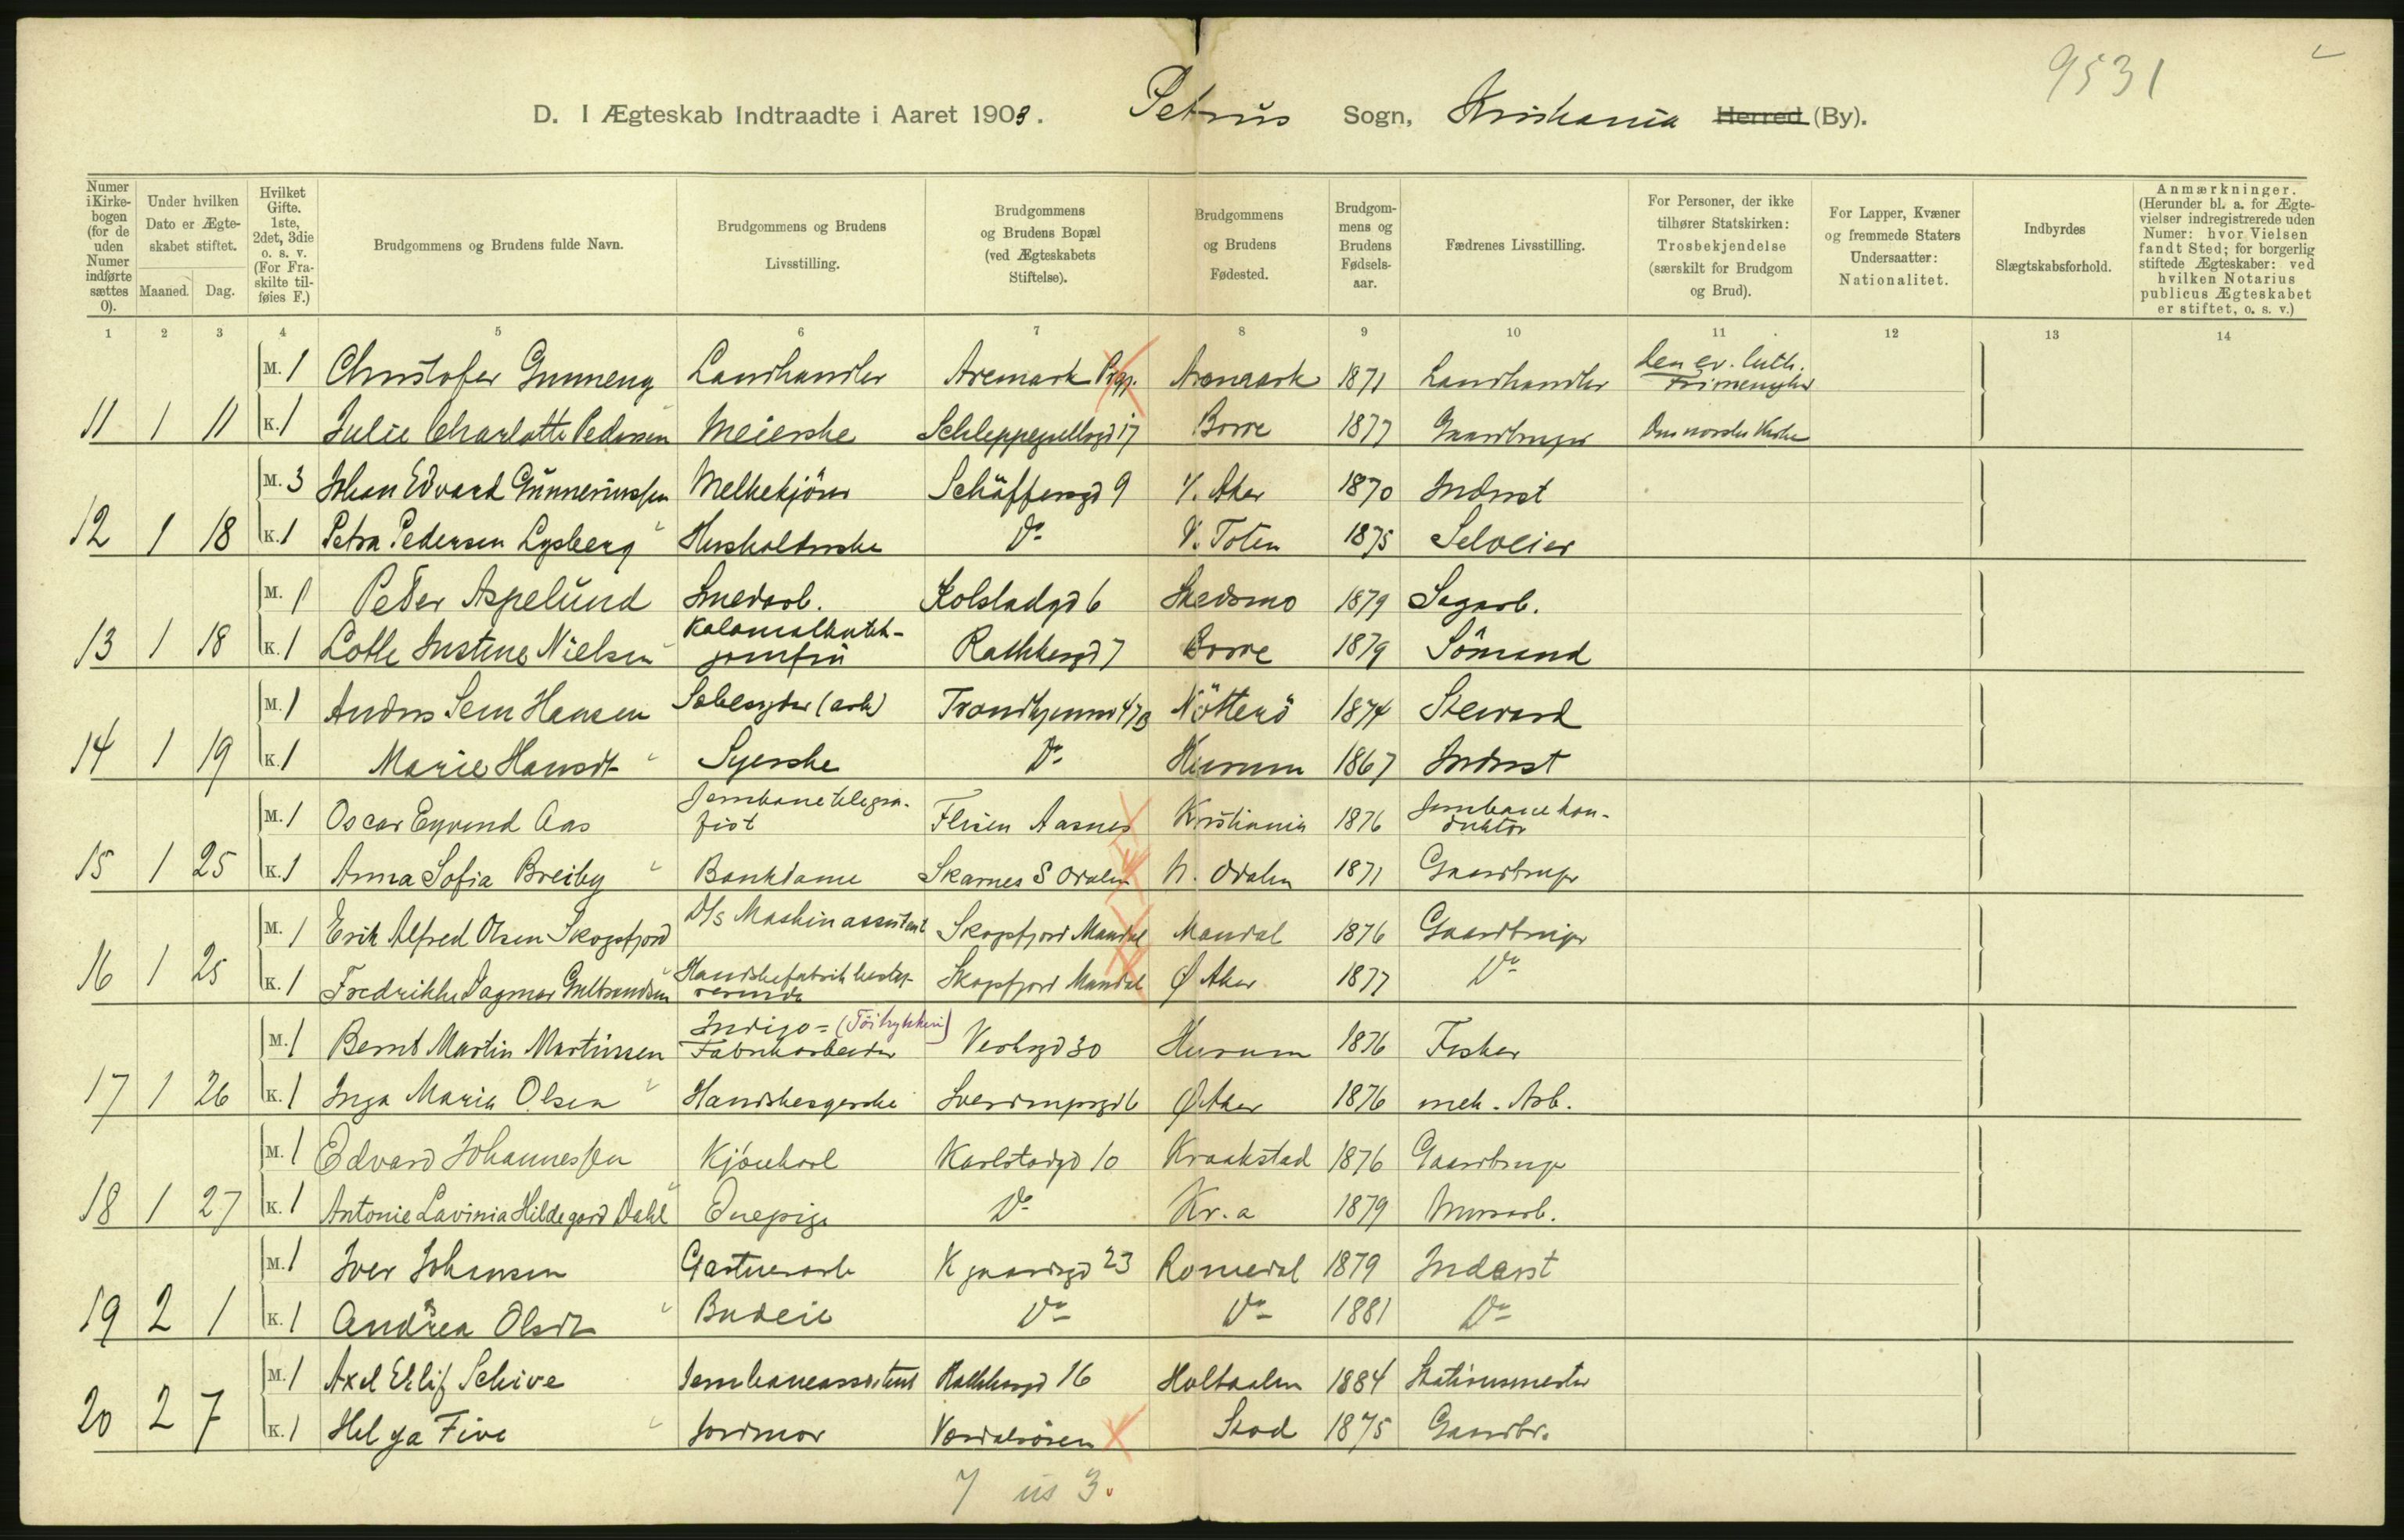 9531
D. I Ægteskab Indtraadte i Aaret 1903. Petrus Sogn, Kristiania Herred (By).
Numer i Kirkebogen (for de uden Numer indførte sættes 0).
Under hvilken Dato er Ægteskabet stiftet.
Maaned. Dag.
Hvilket Gifte. 1ste, 2det, 3die o. s. v. (For Fraskilte tilføies F.)
Brudgommens og Brudens fulde Navn.
Brudgommens og Brudens Livsstilling.
Brudgommens og Brudens Bopæl (ved Ægteskabets Stiftelse).
Brudgommens og Brudens Fødested.
Brudgommens og Brudens Fødselsaar.
Fædrenes Livsstilling.
For Personer, der ikke tilhører Statskirken: Trosbekjendelse (særskilt for Brudgom og Brud).
For Lapper, Kvæner og fremmede Staters Undersaatter: Nationalitet.
Indbyrdes Slægtskabsforhold.
Anmærkninger. (Herunder bl. a. for Ægtevielser indregistrerede uden Numer: hvor Vielsen fandt Sted; for borgerlig stiftede Ægteskaber: ved hvilken Notarius publicus Ægteskabet er stiftet, o. s. v.)
1 2 3 4 5 6 7 8 9 10 11 12 13 14
M. 1 Christofer Gunneng Landhandler Aremark Aremark 1871 Landhandler Den ev. luth. Frimenighed
11 1 11 K. 1 Julie Charlotte Pedersen Meierske Schleppegrellsgd 17 Borre 1877 Gaardbruger Den norske Kirke
M. 3 Johan Edvard Gunneriussen Melkekjører Schäffersgd 9 V. Aker 1870 Inderst
12 1 18 K. 1 Petra Pedersen Lysberg Husholderske Do V. Toten 1875 Selveier
M. 1 Peder Aspelund Smedarb. Kolstadgd 6 Skedsmo 1879 Sagarb.
13 1 18 K. 1 Lotte Justine Nielsen Kolonialbutik-jomfru Rathkesgd 7 Borre 1879 Sömand
M. 1 Anders Sem Hansen Sæbesyder (arb) Trondhjemsv 47B Nötterö 1874 Steward
14 1 19 K. 1 Marie Hansdt Syerske Do Hurum 1867 Inderst
M. 1 Oscar Eyvind Aas Jernbanetelegrafist Flisen Aasnes Kristiania 1876 Jernbanekonduktør
15 1 25 K. 1 Anna Sofia Breiby Bankdame Skarnes S Odalen N. Odalen 1871 Gaardbruger
M. 1 Erik Alfred Olsen Skogsfjord D/s Maskinassistent Skogsfjord Mandal Mandal 1876 Gaardbruger
16 1 25 K. 1 Fredrikke Dagmar Gulbrandsen Handskefabrik bestyrerinde Skogsfjord Mandal Ø Aker 1877 Do
M. 1 Bernt Martin Martinsen Indigo= (Töitrykkeri) Fabrikarbeider Verksgd 30 Hurum 1876 Fisker
17 1 26 K. 1 Inga Marie Olsen Handskesyerske Sverdrupsgd 6 Ø Aker 1876 mek. Arb.
M. 1 Edvard Johannessen Kjørekarl Karlstadgd 10 Kraakstad 1876 Gaardbruger
18 1 27 K. 1 Antonie Lavinia Hildegard Dahl Enepige Do Kr.a 1879 Murarb.
M. 1 Iver Johansen Gartnerarb K gaardsgd 23 Romedal 1879 Inderst
19 2 1 K. 1 Andrea Olsdt Budeie Do Do 1881 Do
M. 1 Axel Eilif Schive Jernbaneassistent Rathkesgd 16 Holtaalen 1884 Stationsmester
20 2 7 K. 1 Helga Five Jordmor Værdalsören Stod 1875 Gaardbr.
7 us 3.